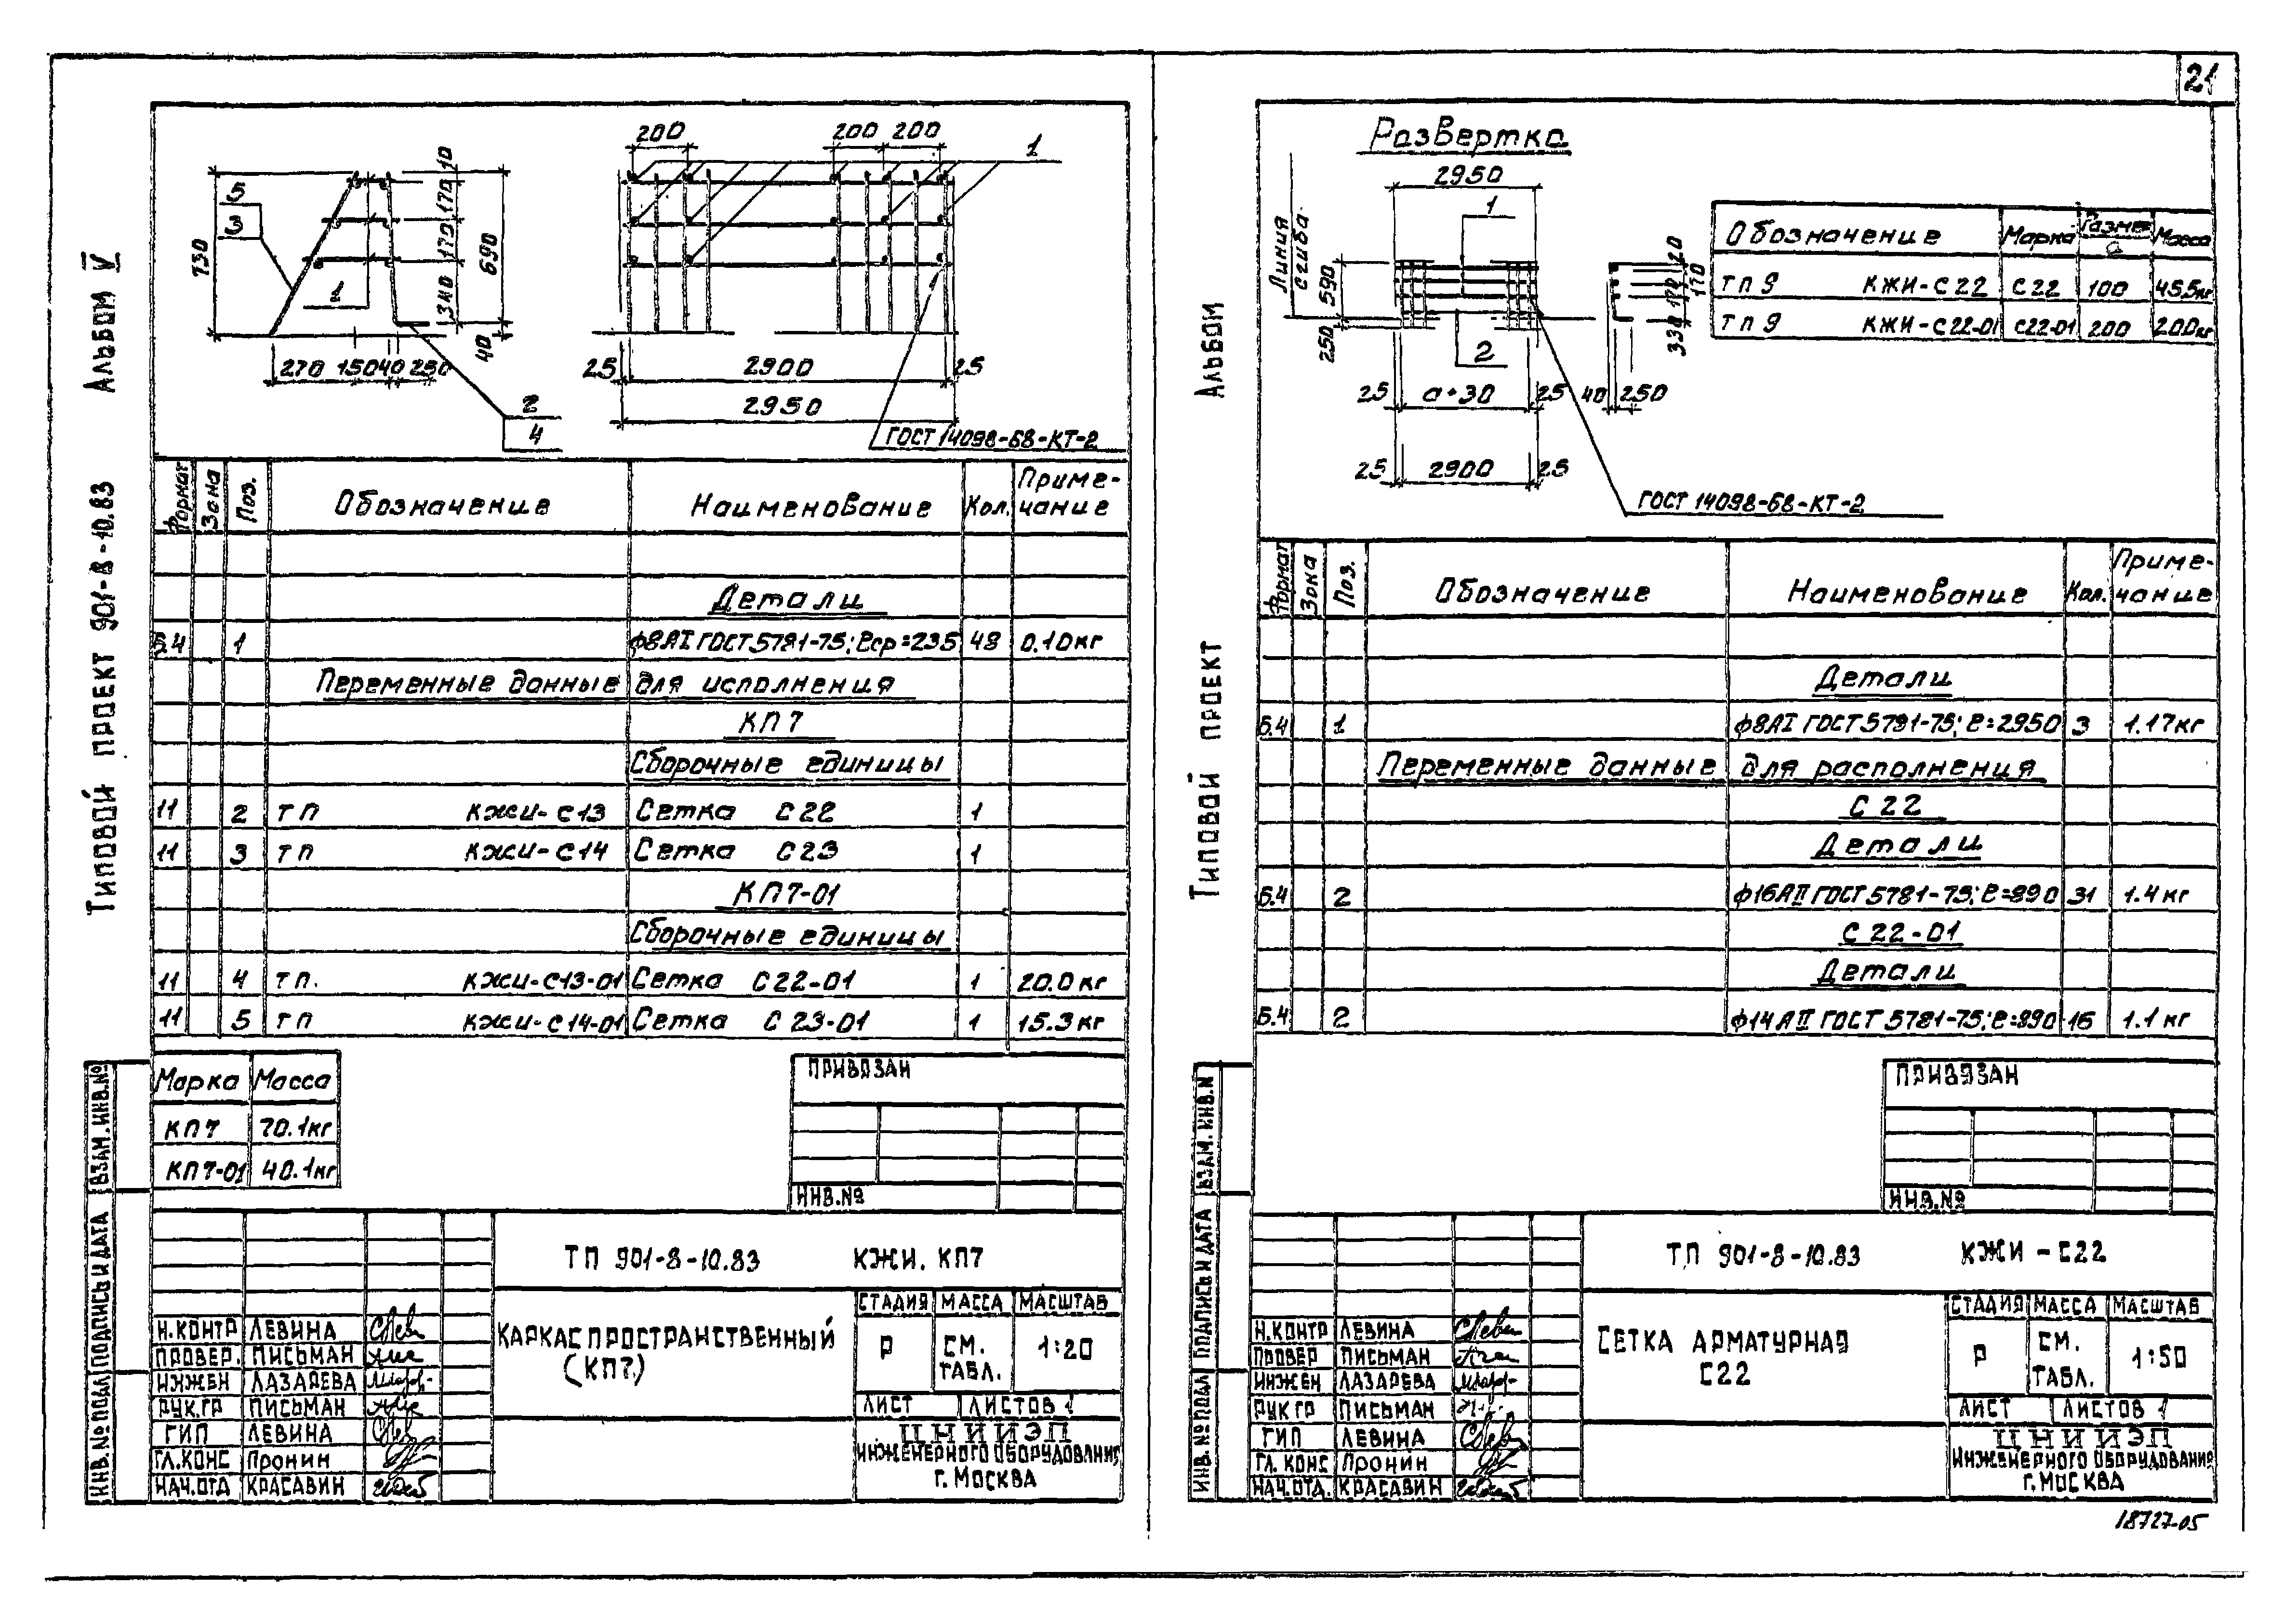 21
Типовой проект 901-8-10.83 Альбом V
200
200 200
1
5
3
1
730
10
170
170
340
690
40
270 150 40 250
2
4
25 2900 25
2950
ГОСТ 14098-68-КТ-2
Формат Зона Поз. Обозначение Наименование Кол. Примечание
Детали
Б4 1 ф8АI ГОСТ 5781-75; ℓср=235 48 0.10кг
Переменные данные для исполнения
КП7
Сборочные единицы
11 2 ТП КЖИ-С13 Сетка С22 1
11 3 ТП КЖИ-С14 Сетка С23 1
КП7-01
Сборочные единицы
11 4 ТП. КЖИ-С13-01 Сетка С22-01 1 20.0кг
11 5 ТП КЖИ-С14-01 Сетка С23-01 1 15.3кг
Марка Масса
КП7 70.1кг
КП7-01 40.1кг
Привязан
Инв.№
Взам.инв.№
Подпись и дата
Инв.№ подл
ТП 901-8-10.83 КЖИ. КП7
Н.контр Левина
Провер. Письман
Инжен Лазарева
Рук.гр Письман
ГИП Левина
Гл.конс Пронин
Нач.отд Красавин
Каркас пространственный
(КП7.)
Стадия Масса Масштаб
Р См. табл. 1:20
Лист Листов 1
ЦНИИЭП
инженерного оборудования
г. Москва
Типовой проект Альбом
Развертка
2950
1
Линия сгиба
590
250
2
25 а*30 25
25 2900 25
20
170
170
330
40 250
ГОСТ 14098-68-КТ-2
Обозначение Марка Размер а Масса
ТП 9 КЖИ-С22 С22 100 45.5кг
ТП 9 КЖИ-С22-01 С22-01 200 20.0кг
Формат Зона Поз. Обозначение Наименование Кол. Примечание
Детали
Б.4 1 ф8АI ГОСТ 5781-75; ℓ=2950 3 1.17кг
Переменные данные для располнения
С22
Детали
Б.4 2 ф16АII ГОСТ 5781-75; ℓ=890 31 1.4кг
С22-01
Детали
Б.4 2 ф14АII ГОСТ 5781-75; ℓ=890 16 1.1кг
Привязан
Инв.№
Взам.инв.№
Подпись и дата
Инв.№ подл
ТП 901-8-10.83 КЖИ-С22
Н.контр Левина
Провер Письман
Инжен Лазарева
Рук гр Письман
ГИП Левина
Гл. конс Пронин
Нач.отд. Красавин
Сетка арматурная
С22
Стадия Масса Масштаб
Р См. табл. 1:50
Лист Листов 1
ЦНИИЭП
инженерного оборудования
г. Москва
18727-05